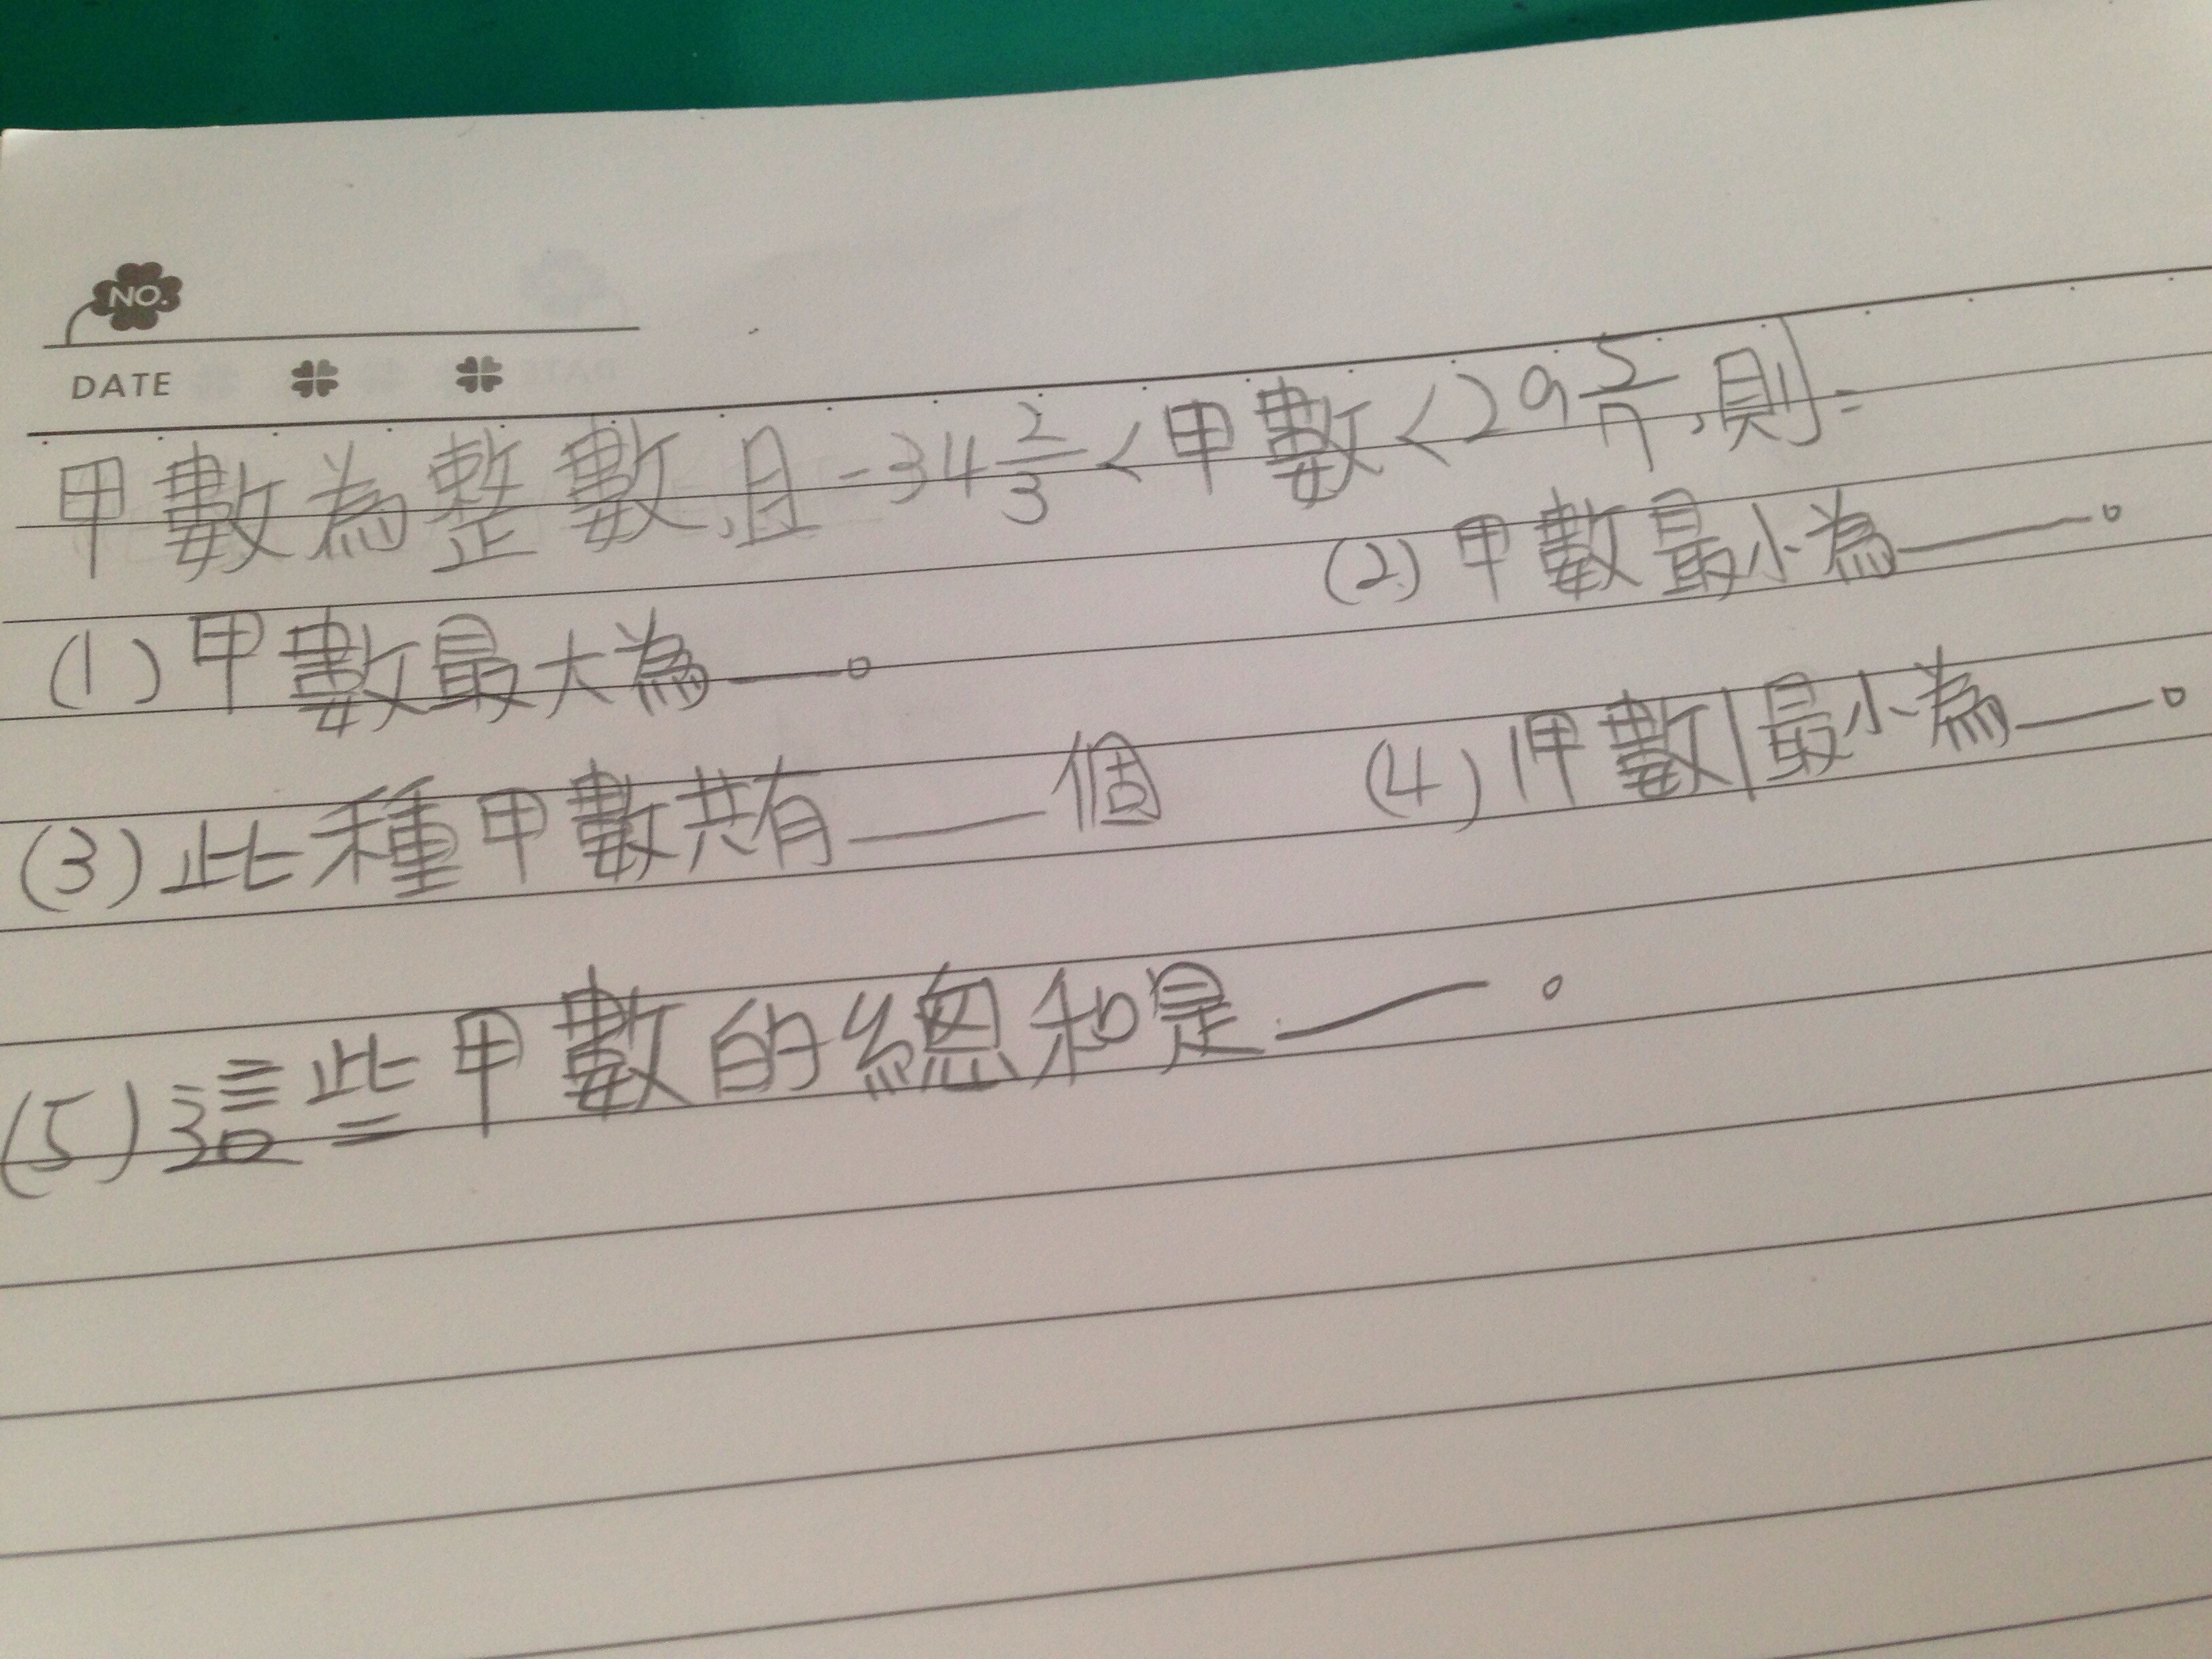 NO.
DATE
甲數為整數,且-34 2/3 < 甲數 < 29 5/7,則:
(1)甲數最大為____。 (2)甲數最小為____。
(3)此種甲數共有____個 (4)|甲數|最小為____。
(5)這些甲數的總和是____。